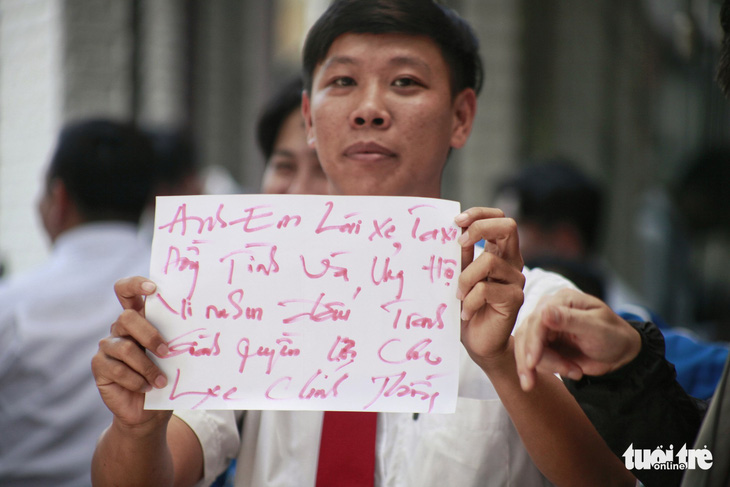 Anh Em Lái xe, Taxi
Đồng Tình Và, Ủng Hộ
Vinasun Đấu Tranh
Giành quyền lợi Cho
Lực Chính Thống
tuổi trẻ
online